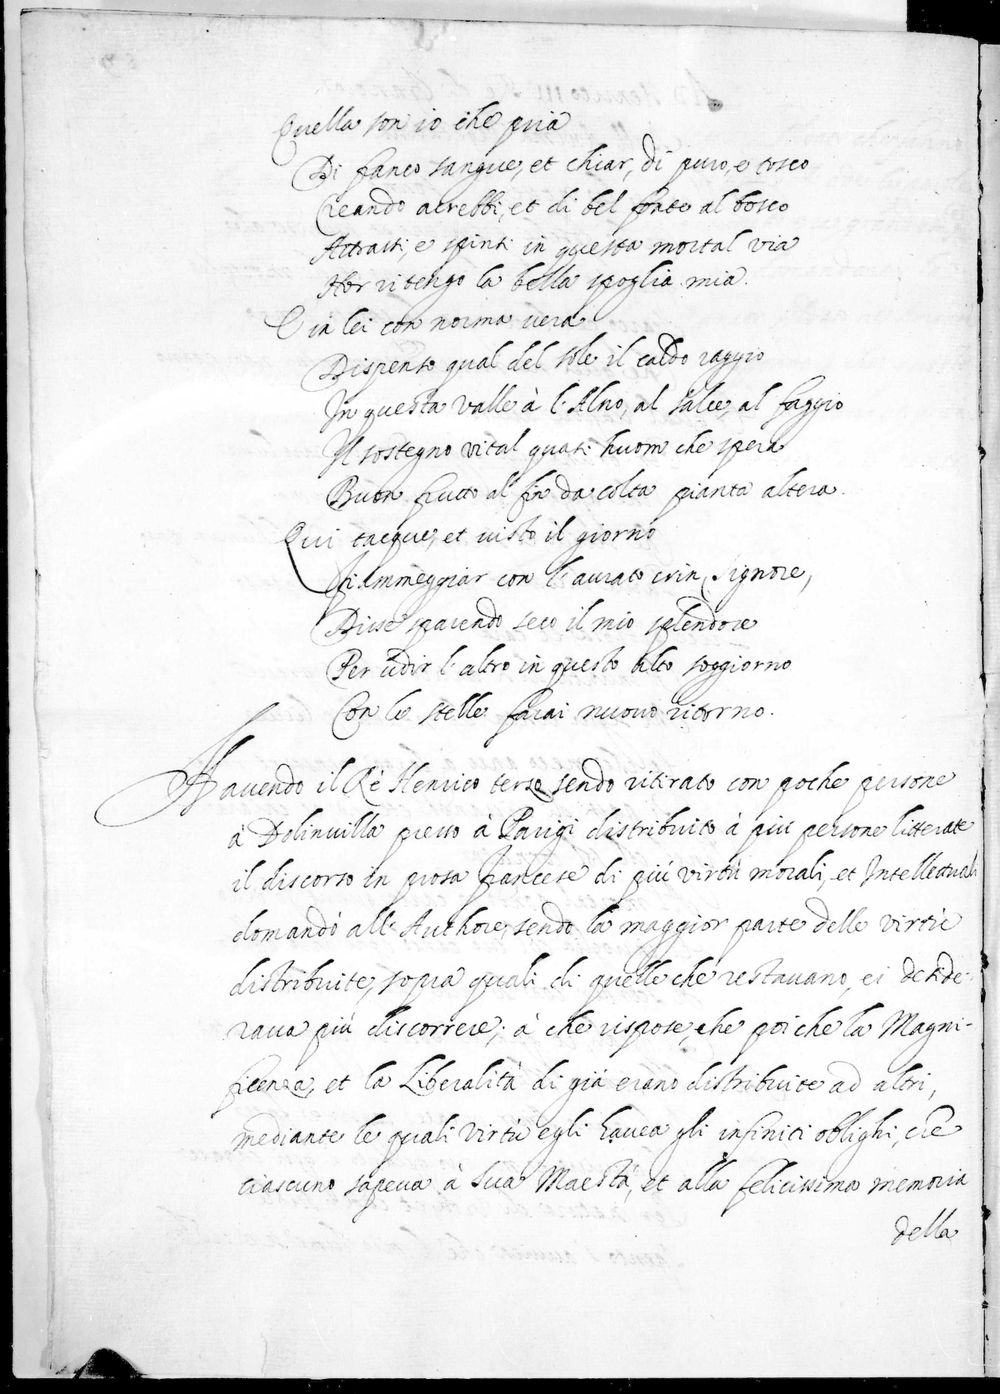 Quella son io che pria
Di franco sangue, et chiar, di puro, e tosco
Creando accrebbi, et di bel fonte al bosco
Attratti, e spinti in questa mortal via
Hor ritengo la bella spoglia mia.
E in lei con norma vera
Dispenso qual del sole il caldo raggio
In questa valle à l'Alno, al salce, al faggio
Il sostegno vital quasi huom che spera
Buon frutto al fin da colta pianta altera.
Qui tacque, et visto il giorno
Fiammeggiar con l'aurato crin, signore,
Disse spavendo seco il mio splendore
Per udir l'altro in questo alto soggiorno
Con le stelle farai nuovo ritorno.
Havendo il Rè Henrico terzo sendo ritirato con poche persone
à Dolinvilla presso à Parigi distribuito à più persone litterate
il discorso in prosa francese di più virtù morali, et Intellettuali
domandò all'Authore, sendo la maggior parte delle virtù
distribuite, sopra quali di quelle che restavano, ei deside-
rava più discorrere; à che rispose, che poi che la Magni-
ficenza, et la Liberalità di già erano distribuite ad altri,
mediante le quali virtù egli havea gli infiniti oblighi, che
ciascuno sapeva à Sua Maestà, et alla felicissima memoria
della